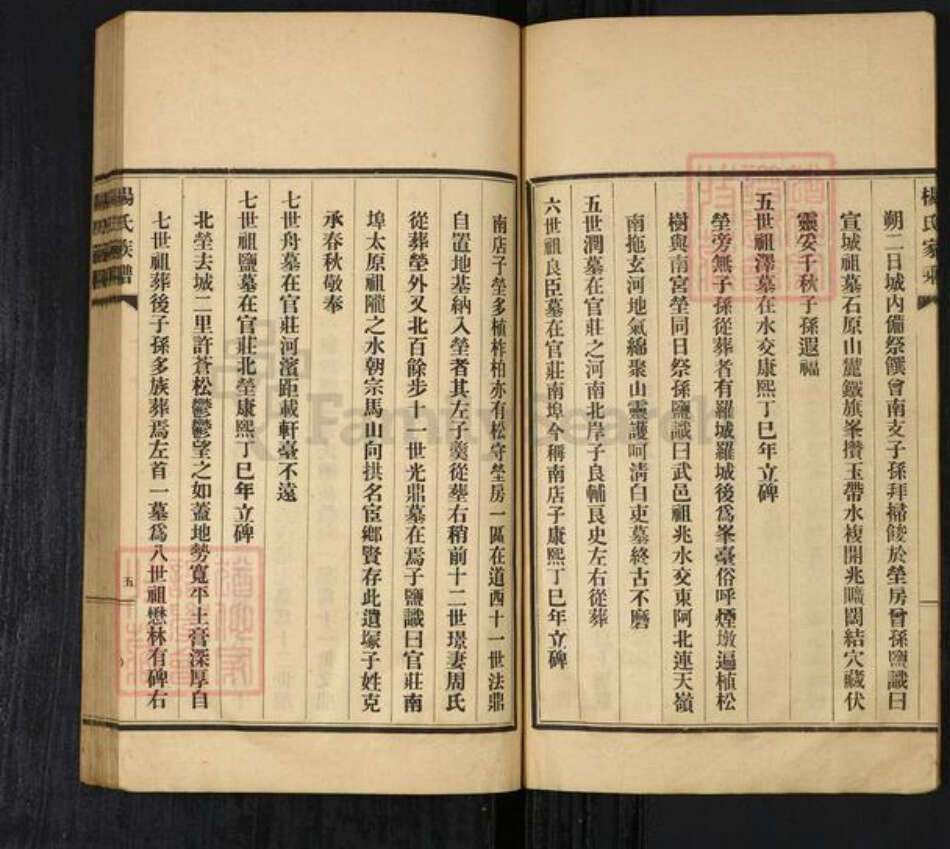 楊氏家乘
朔二日城內備祭饌曾南支子孫拜掃餕於塋房曾孫鹽識曰
宣城祖墓石原山麓鐵旗峯攢玉帶水複開兆曠闊結穴藏伏
靈妥千秋子孫遐福
五世祖澤墓在水交康熙丁巳年立碑
塋旁無子孫從葬者有羅城羅城後爲峯臺俗呼煙墩遍植松
樹與南宮塋同日祭孫鹽識曰武邑祖兆水交東阿北連天嶺
南拖玄河地氣綿聚山靈護呵清白吏墓終古不磨
五世潤墓在官莊之河南北岸子良輔良史左右從葬
六世祖良臣墓在官莊南埠今稱南店子康熙丁巳年立碑
南店子塋多植柞柏亦有松守塋房一區在道西十一世法鼎
自置地基納入塋者其左子羹從塟右稍前十二世璟妻周氏
從葬塋外又北百餘步十一世光鼎墓在焉子鹽識曰官莊南
埠太原祖隴之水朝宗馬山向拱名宦鄉賢存此遺塚子姓克
承春秋敬奉
七世舟墓在官莊河濱距載軒臺不遠
七世祖鹽墓在官莊北塋康熙丁巳年立碑
北塋去城二里許蒼松鬱鬱望之如蓋地勢寬平土膏深厚自
七世祖葬後子孫多族葬焉左首一墓爲八世祖懋林有碑右
楊氏族譜
五
FamilySearch